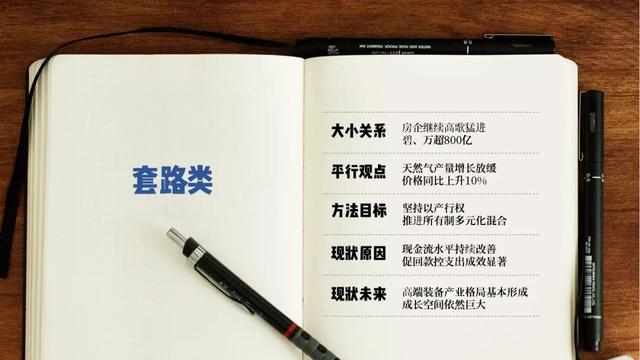 套路类
大小关系
房企继续高歌猛进
碧、万超800亿
平行观点
天然气产量增长放缓
价格同比上升10%
方法目标
坚持以产行权
推进所有制多元化混合
现状原因
现金流水平持续改善
促回款控支出成效显著
现状未来
高端装备产业格局基本形成
成长空间依然巨大